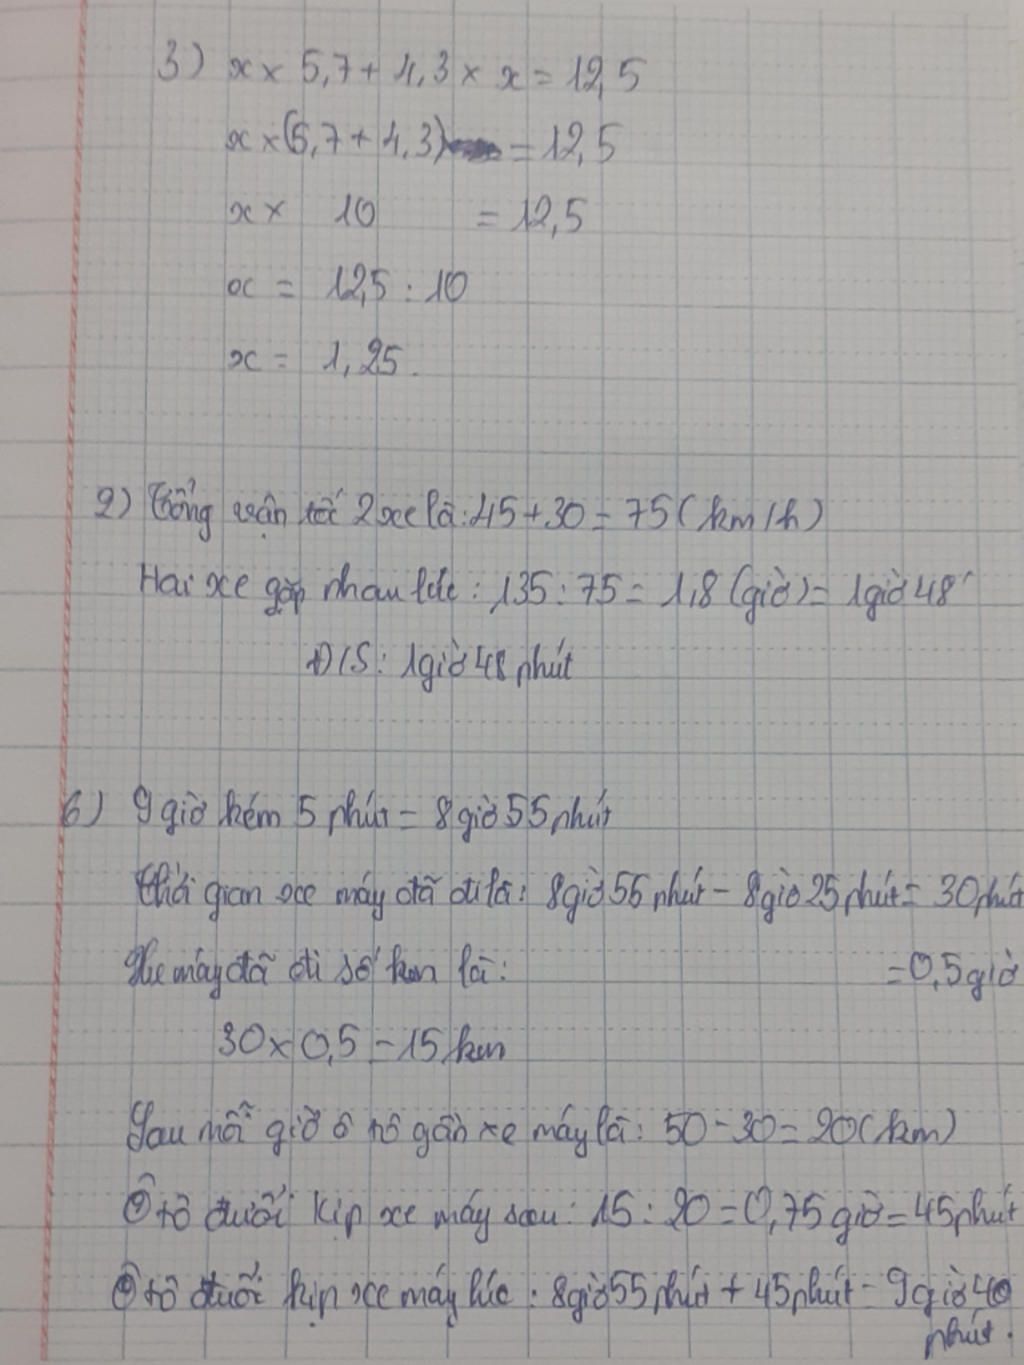 3) x × 5,7 + 4,3 × x = 12,5
x × (5,7 + 4,3) = 12,5
x × 10 = 12,5
x = 12,5 : 10
x = 1,25.
2) Tổng vận tốc 2 xe là: 45 + 30 = 75 (km/h)
Hai xe gặp nhau lúc: 135 : 75 = 1,8 (giờ) = 1 giờ 48'
Đ/S: 1 giờ 48 phút
6) 9 giờ kém 5 phút = 8 giờ 55 phút
Thời gian xe máy đã đi là: 8 giờ 55 phút - 8 giờ 25 phút = 30 phút
= 0,5 giờ
Xe máy đã đi số km là:
30 × 0,5 = 15 km
Sau mỗi giờ ô tô gần xe máy là: 50 - 30 = 20 (km)
Ô tô đuổi kịp xe máy sau: 15 : 20 = 0,75 giờ = 45 phút
Ô tô đuổi kịp xe máy lúc: 8 giờ 55 phút + 45 phút = 9 giờ 40
phút.